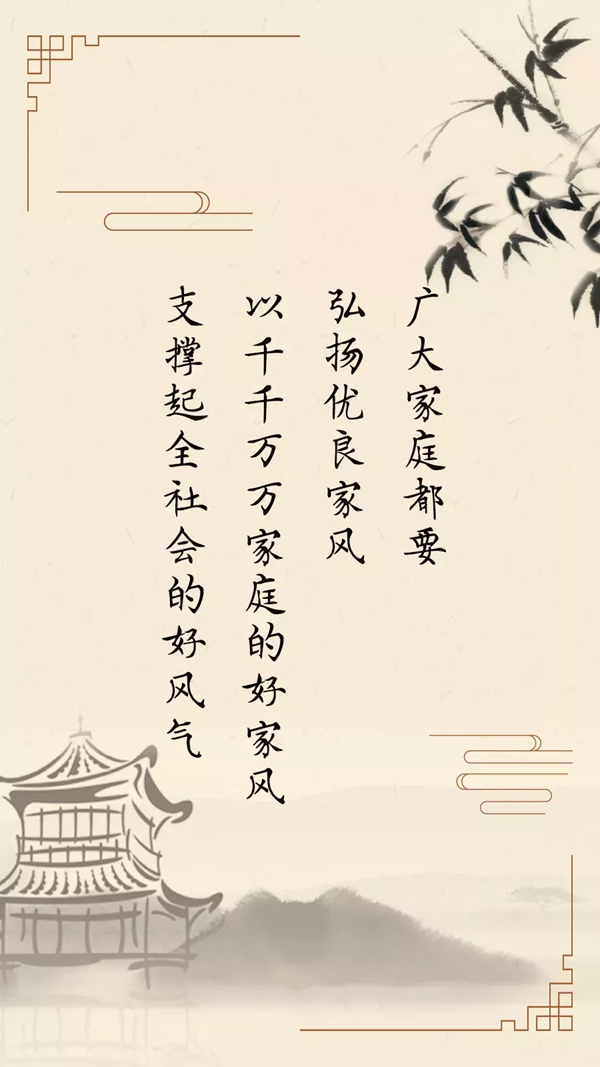 广大家庭都要
弘扬优良家风
以千千万万家庭的好家风
支撑起全社会的好风气